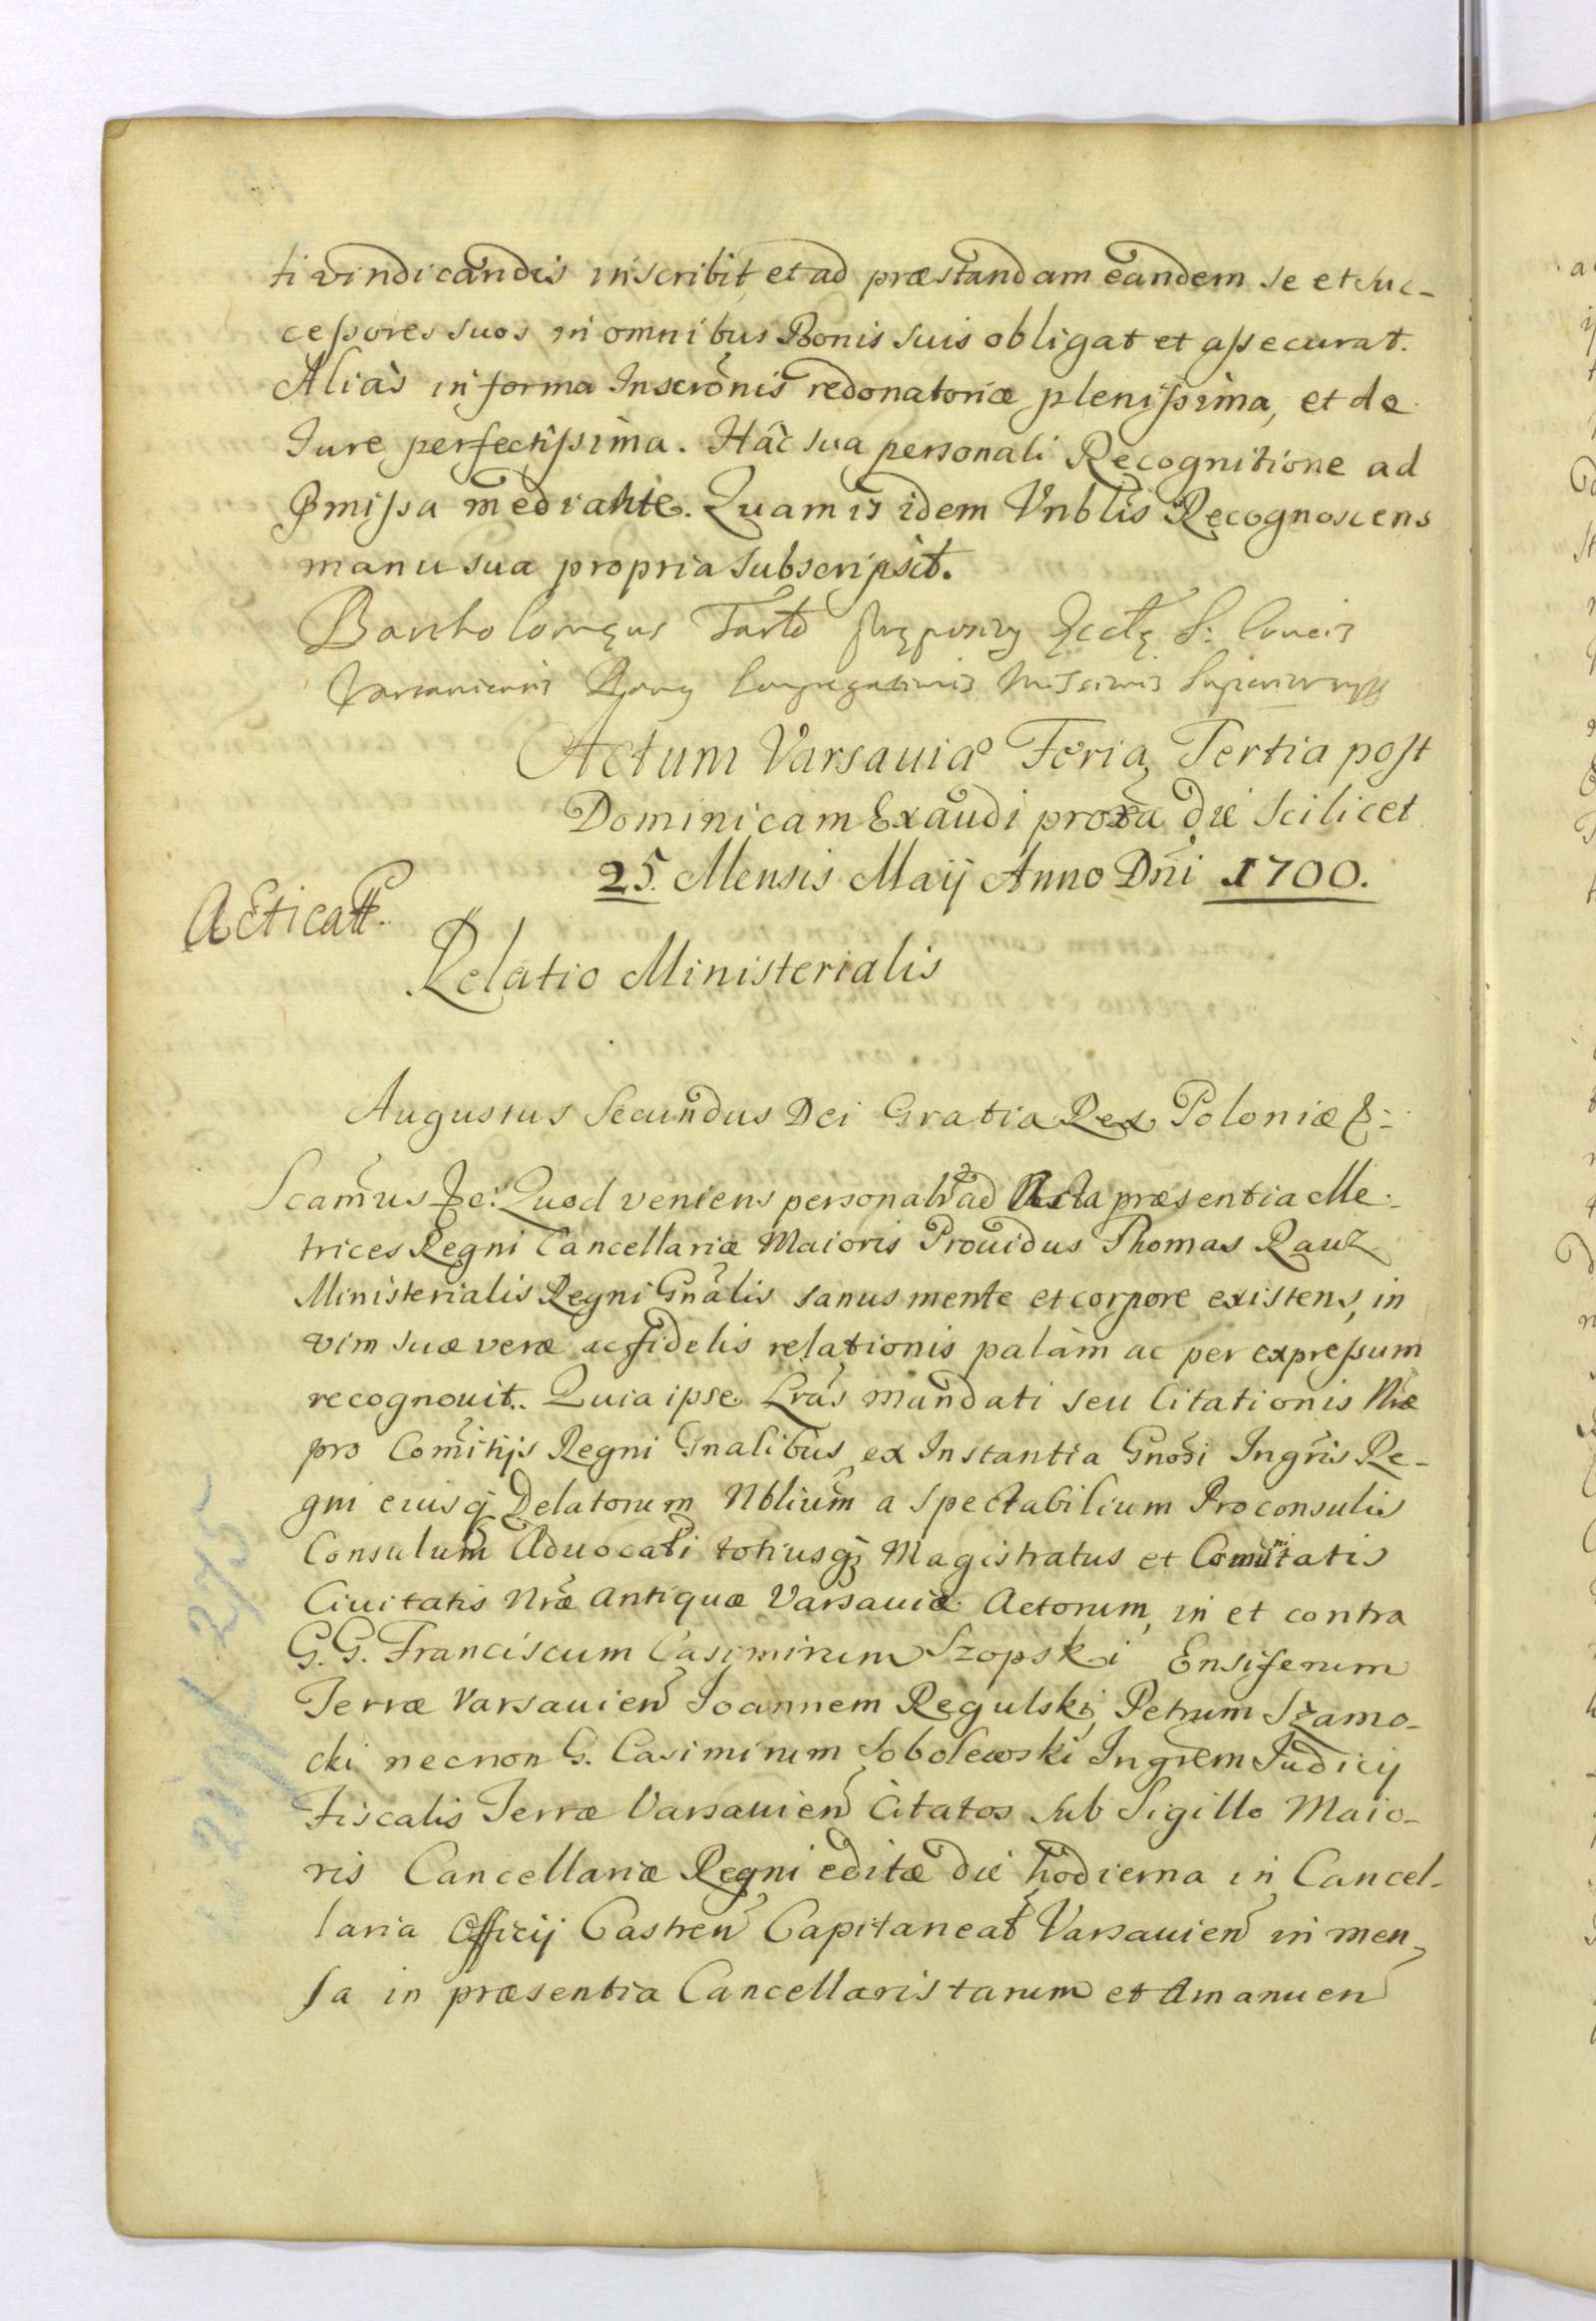 ti vindicandis inscribit, et ad præstandam eandem se et suc-
cessores suos in omnibus Bonis suis obligat et assecurat.
Aliàs in forma Inscrõnis redonatoriæ plenissima, et de
Iure perfectissima. Hâc sua personali Recognitione ad
pmissa mediante. Quam is idem Vnblis Recognoscens
manu sua propria subscripsit.
Bartholomęus Tarło pręposity Ecclę S: Crucis
Varsaviensis Congregationis Missionis Superior mpp
Actum Varsauiæ Feria Tertia post
Dominicam Exaudi proxa die scilicet
25. Mensis Maij Anno Dñi 1700.
Acticatt.
Relatio Ministerialis
Augustus Secundus Dei Gratia Rex Poloniæ &:
Scam̃us &c: Quod veniens personalr ad Acta præsentia Me-
trices Regni Cancellariæ Maioris Prouidus Thomas Rauz
Ministerialis Regni Gnãlis sanus mente et corpore existens, in
vim suæ veræ ac fidelis relationis palàm ac per expressum
recognouit. Quia ipse Lrãs mandati seu Citationis Nræ
pro Comitijs Regni Gnalibus ex Instantia Gnosi Ingris Re-
gni eiusq Delatorum Nblium a spectabilium Proconsulis
Consulum Aduocati totiusq Magistratus et Comunitatis
Ciuitatis Nræ Antiquæ Varsauiæ Actorum, in et contra
G. G. Franciscum Casimirum Szopski Ensiferum
Terræ Varsauien Ioannem Regulski, Petrum Szamo-
cki necnon G. Casimirum Sobolewski Ingrem Iudicij
Fiscalis Terræ Varsauien Citatos sub Sigillo Maio-
ris Cancellariæ Regni editæ die hodierna in Cancel-
laria Officij Castren Capitaneat Varsauien in men-
sa in præsentia Cancellaristarum et Amanuen